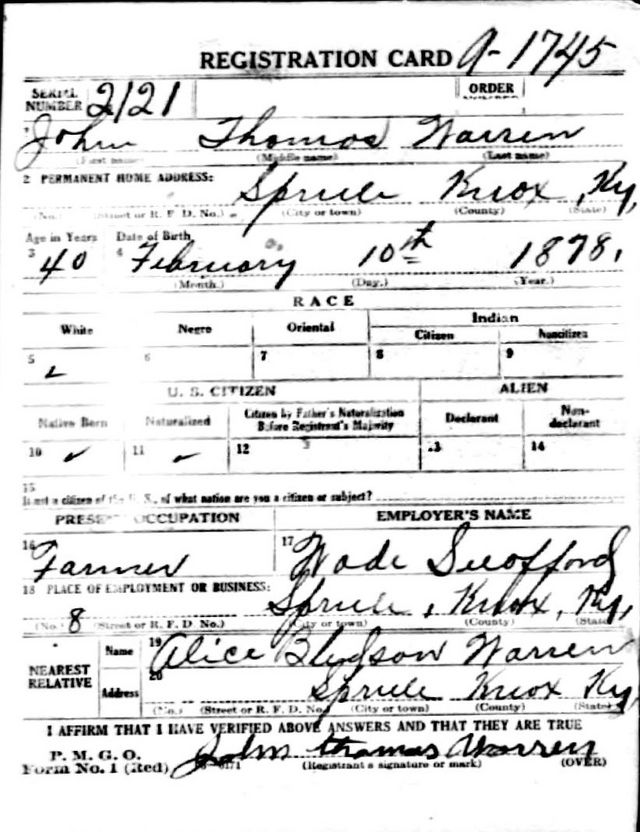 REGISTRATION CARD 9-1745
SERIAL NUMBER 2121 ORDER NUMBER
1 John Thomas Warren
(First name) (Middle name) (Last name)
2 PERMANENT HOME ADDRESS: Sprule Knox, Ky,
(No.) (Street or R. F. D. No.) (City or town) (County) (State)
Age in Years Date of Birth
3 40 4 February 10th 1878,
(Month.) (Day.) (Year.)
RACE
White Negro Oriental Indian
Citizen Noncitizen
5 ✓ 6 7 8 9
U. S. CITIZEN ALIEN
Native Born Naturalized Citizen by Father's Naturalization Before Registrant's Majority Declarant Non-declarant
10 ✓ 11 ✓ 12 13 14
15
If not a citizen of the U. S., of what nation are you a citizen or subject?
PRESENT OCCUPATION EMPLOYER'S NAME
16 Farmer 17 Wade
18 PLACE OF EMPLOYMENT OR BUSINESS:
8 Sprule, Knox, Ky,
(No.) (Street or R. F. D. No.) (City or town) (County) (State)
NEAREST RELATIVE Name 19 Alice Bledsow Warren
Address 20 Sprule Knox Ky,
(No.) (Street or R. F. D. No.) (City or town) (County) (State)
I AFFIRM THAT I HAVE VERIFIED ABOVE ANSWERS AND THAT THEY ARE TRUE
P. M. G. O.
Form No. 1 (Red) John Thomas Warren
(Registrant's signature or mark) (OVER)